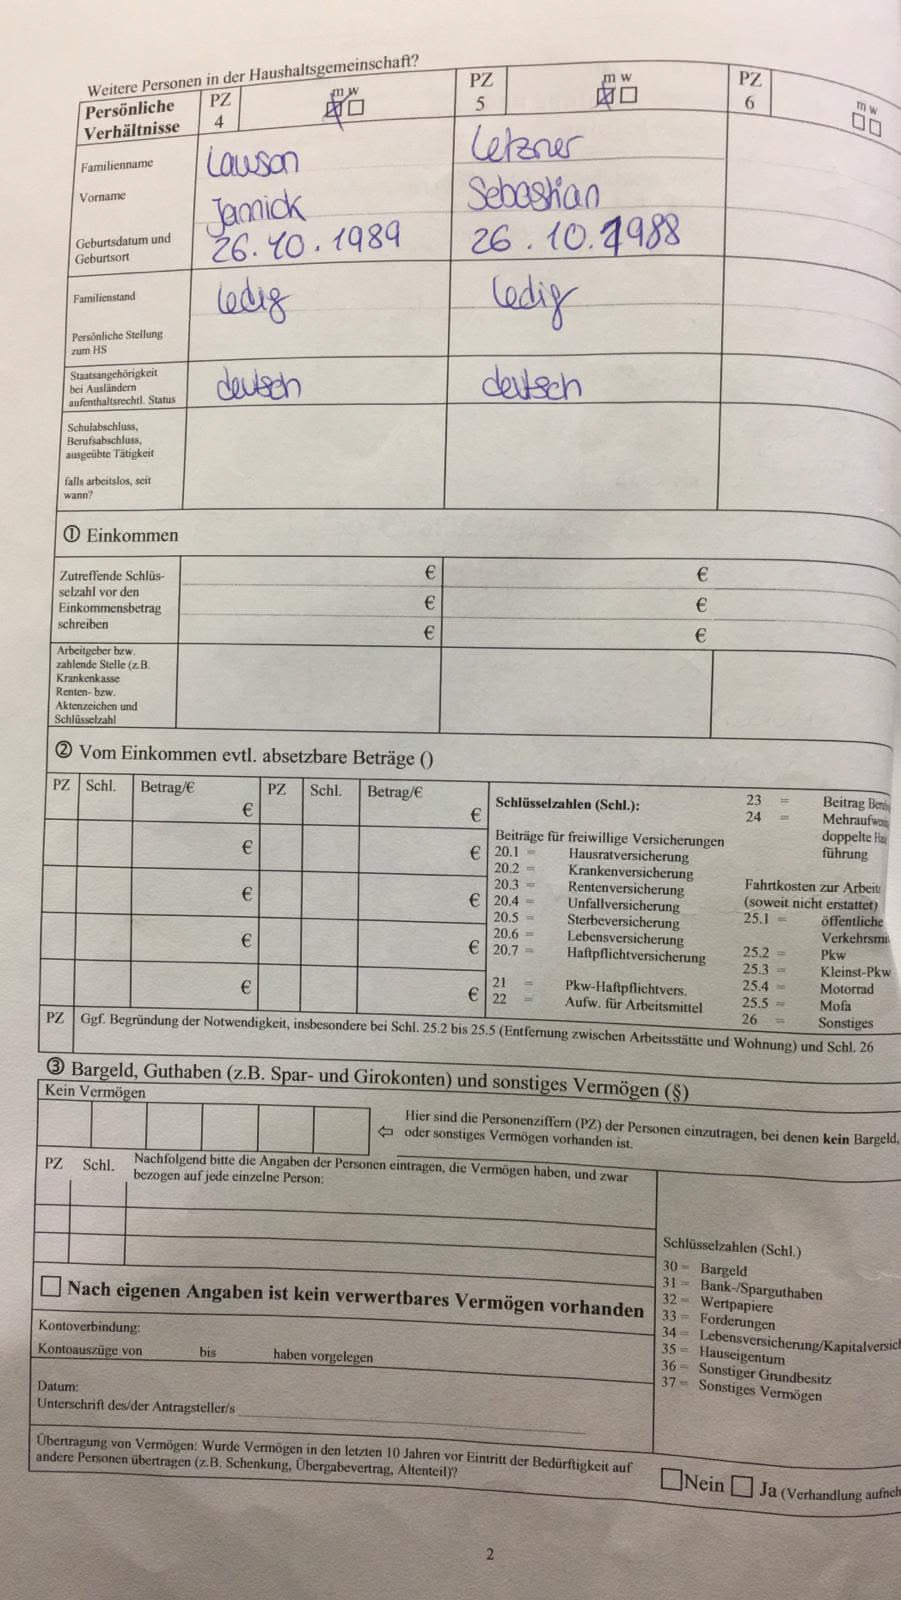 Weitere Personen in der Haushaltsgemeinschaft?
Persönliche Verhältnisse PZ 4 m w PZ 5 m w PZ 6 m w
Familienname Lawson Letzner
Vorname Jannick Sebastian
Geburtsdatum und Geburtsort 26.10.1989 26.10.1988
Familienstand ledig ledig
Persönliche Stellung
zum HS
Staatsangehörigkeit
bei Ausländern
aufenthaltsrechtl. Status deutsch deutsch
Schulabschluss,
Berufsabschluss,
ausgeübte Tätigkeit
falls arbeitslos, seit
wann?
① Einkommen
Zutreffende Schlüs- € €
selzahl vor den
Einkommensbetrag € €
schreiben € €
Arbeitgeber bzw.
zahlende Stelle (z.B.
Krankenkasse
Renten- bzw.
Aktenzeichen und
Schlüsselzahl
② Vom Einkommen evtl. absetzbare Beträge ()
PZ Schl. Betrag/€ PZ Schl. Betrag/€
€ €
€ €
€ €
€ €
€ €
Schlüsselzahlen (Schl.):
Beiträge für freiwillige Versicherungen
20.1 = Hausratversicherung
20.2 = Krankenversicherung
20.3 = Rentenversicherung
20.4 = Unfallversicherung
20.5 = Sterbeversicherung
20.6 = Lebensversicherung
20.7 = Haftpflichtversicherung
21 = Pkw-Haftpflichtvers.
22 = Aufw. für Arbeitsmittel
23 = Beitrag
24 =
doppelte
führung
Fahrtkosten zur
(soweit nicht erstattet)
25.1 = öffentliche
25.2 = Pkw
25.3 = Kleinst-Pkw
25.4 = Motorrad
25.5 = Mofa
26 = Sonstiges
PZ Ggf. Begründung der Notwendigkeit, insbesondere bei Schl. 25.2 bis 25.5 (Entfernung zwischen Arbeitsstätte und Wohnung) und Schl. 26
③ Bargeld, Guthaben (z.B. Spar- und Girokonten) und sonstiges Vermögen (§)
Kein Vermögen
⇦ Hier sind die Personenziffern (PZ) der Personen einzutragen, bei denen kein Bargeld,
oder sonstiges Vermögen vorhanden ist.
PZ Schl. Nachfolgend bitte die Angaben der Personen eintragen, die Vermögen haben, und zwar
bezogen auf jede einzelne Person:
Schlüsselzahlen (Schl.)
30 = Bargeld
31 = Bank-/Sparguthaben
32 = Wertpapiere
33 = Forderungen
34 =
35 = Hauseigentum
36 = Sonstiger Grundbesitz
37 = Sonstiges Vermögen
Nach eigenen Angaben ist kein verwertbares Vermögen vorhanden
Kontoverbindung:
Kontoauszüge von bis haben vorgelegen
Datum:
Unterschrift des/der Antragsteller/s
Übertragung von Vermögen: Wurde Vermögen in den letzten 10 Jahren vor Eintritt der Bedürftigkeit auf
andere Personen übertragen (z.B. Schenkung, Übergabevertrag, Altenteil)?
Nein Ja (Verhandlung
2